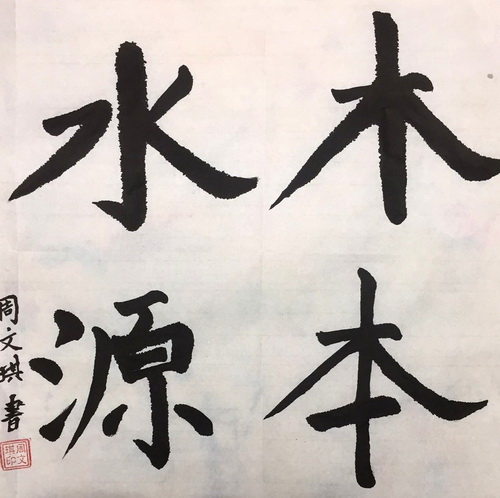 木本
水源
周文琪書
周文
琪印